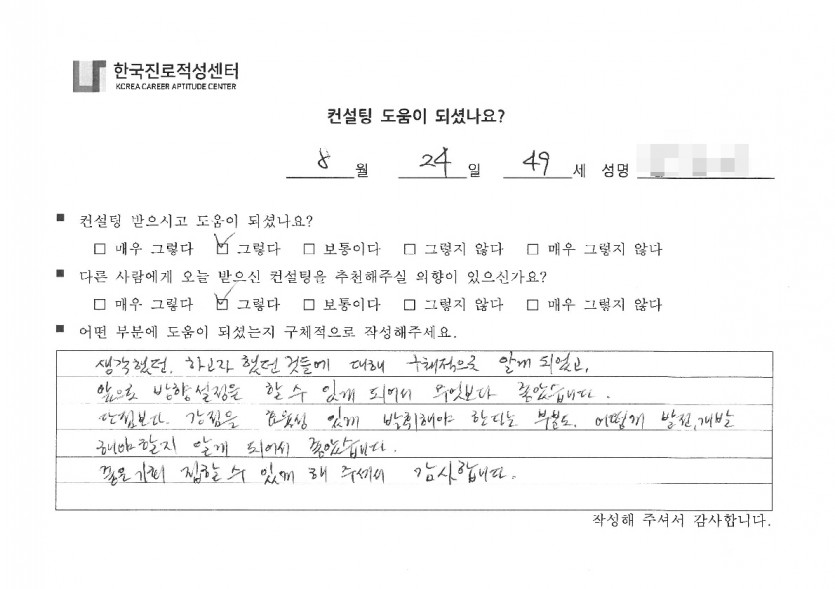 한국진로적성센터
KOREA CAREER APTITUDE CENTER
컨설팅 도움이 되셨나요?
8 월 24 일 49 세 성명
■ 컨설팅 받으시고 도움이 되셨나요?
□ 매우 그렇다 ☑ 그렇다 □ 보통이다 □ 그렇지 않다 □ 매우 그렇지 않다
■ 다른 사람에게 오늘 받으신 컨설팅을 추천해주실 의향이 있으신가요?
□ 매우 그렇다 ☑ 그렇다 □ 보통이다 □ 그렇지 않다 □ 매우 그렇지 않다
■ 어떤 부분에 도움이 되셨는지 구체적으로 작성해주세요.
생각했던, 하고자 했던 것들에 대해 구체적으로 알게 되었고,
앞으로 방향 설정을 할 수 있게 되어서 무엇보다 좋았습니다.
단점보다 강점을 효율성 있게 발휘해야 한다는 부분도, 어떻게 발전, 개발
해야 할지 알게 되어서 좋았습니다.
할 수 있게 해 주셔서 감사합니다.
작성해 주셔서 감사합니다.